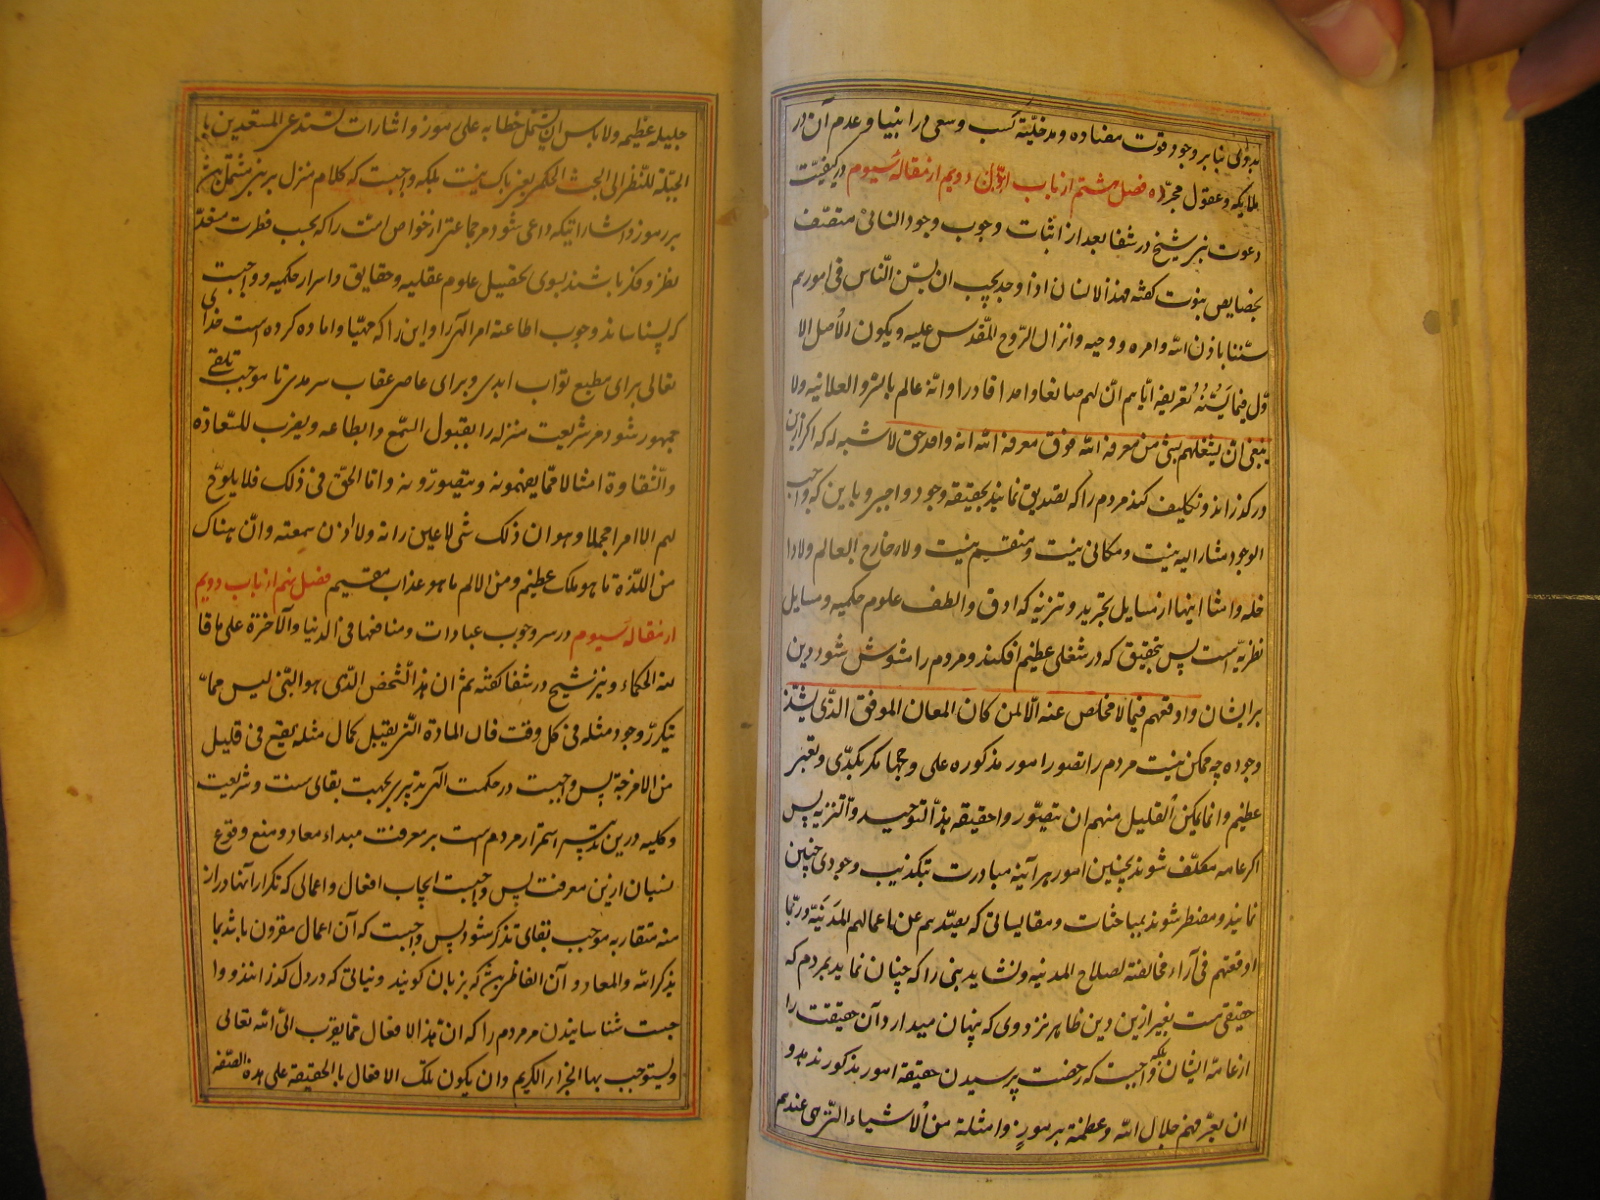 بدولی بنا بر وجود قوت مضاده و مدخلیّة کسب و سعی در انبیا و عدم آن در
ملایکه و عقول مجرّده فصل هشتم از باب دویم از مقاله سیوم در کیفیّت
دعوت نبی شیخ در شفا بعد از اثبات وجوب وجود انسانی متصّف
بخصایص نبوت کفته فهذا الانسان اذا وجد یجب ان یسنّ للنّاس فی امورهم
سننا باذن الله و امره و وحیه و انزال الروح المقّدس علیه و یکون الاصل الا
وّل فیما یسنّه تعریفه ایّاهم انّ لهم صانعا واحدا قادرا و انّه عالم بالسّر و العلانیه ولا
ینبغی ان یشغلهم بشئ من معرفة الله فوق معرفة الله انه واحد حق لا شبه له که اکر ازین
در کذراند و تکلیف کند مردم را که تصدیق نمایند بحقیقه وجود واجبی و باین که واجب
الوجود مشار الیه نیست و مکانی نیست و منقسم نیست ولا خارج العالم ولا دا
خله و امثال اینها از مسایل تجرید و تنزیه که ادق و الطف علوم حکمیه و مسایل
نظریّه است پس بتحقیق که در شغلی عظیم افکند مردم را و مشوش شود دین
بر ایشان و اوقعهم فیما لا مخلص عنه الّا لمن کان المعان الموفق الذّی یشّذ
وجوده چه ممکن نیست مردم را تصور امور مذکوره علی وجهها مکر بکدّی و تعبی
عظیم و انما یمکن القلیل منهم ان یتصّوروا حقیقه هذا التوحید و التنزیه پس
اکر عامه مکلّف شوند بچنین امور هر آینه مبادرت بتکذیب وجودی چنین
نمایند و مضطر شوند بمباحثات و مقایساتی که یصّدهم عن اعمالهم المدنیّة و ربّما
اوقعتهم فی آراء مخالفة لصلاح المدنیه و نشاید نبی را که چنان نماید بمردم که
حقیقی هست بغیر ازین دین ظاهر نزد وی که پنهان میدارد آن حقیقت را
از عامه ایشان بلکه واجبست که رخصت پرسیدن حقیقة امور مذکور ندهد و
ان یعرّفهم جلال الله و عظمته برموز و امثلة من الاشیاء التّی هی عندهم
جلیله عظیمه ولا باس ان یشتمل خطابه علی رموز و اشارات تستدعی المستعدین با
لجبلّة للنّظر الی البحث الحکمی یعنی باک نیست بلکه واجبست که کلام منزل بر نبی مشتمل باشد
بر رموز و اشاراتیکه داعی شود مر جماعتی از خواص امت را که بحسب فطرت مستعدّ
نظر و فکر باشند بسوی تحصیل علوم عقلیه و حقایق و اسرار حکمیه و واجبست
که بشناساند وجوب اطاعة امر الهی را و این را که مهیّا و اماده کرده است خدای
تعالی برای مطیع ثواب ابدی و برای عاصی عقاب سرمدی تا موجب تلقی
جمهور شود مر شریعت منزله را بقبول السّمع و الطاعه و یضرب للسّعادة
و الشّقاوة امثالا فمّا یفهمونه و یتصوّرونه و امّا الحّق فی ذلک فلا یلوّح
لهم الا امرا مجملا و هو ان ذلک شئ لا عین راته ولا اذن سمعته و انّ هناک
من اللّذة ما هو ملک عظیم و من الالم ما هو عذاب مقیم فصل نهم از باب دویم
از مقاله سیوم در سر وجوب عبادات و منافعها فی الدنیا و الآخرة علی ما قا
لته الحکماء و نیز شیخ در شفا کفته ثم ان هذا الشّخص الذّی هو النّبی لیس ممّا
یتکرّر وجود مثله فی کل وقت فان المادة التی یقبل کمال مثله یقع فی قلیل
من الامزجة پس واجبست در حکمت الهی تدبیری بجهت بقای سنت و شریعت
و کلیه درین تدبیر استمرار مردم است بر معرفت مبداء و معاد و منع وقوع
نسیان ازین معرفت پس واجبست ایجاب افعال و اعمالی که تکرار انها در از
منه متقاربه موجب بقای تذکر شود پس واجبست که آن اعمال مقرون باشد بما
یذکر الله و المعاد و آن الفاظی باشد که بزبان کویند و نیاتی که در دل کذرانند و وا
جبست شناسانیدن مر مردم را که ان هذا الافعال مما یقرب الی الله تعالی
و یستوجب بها الجزاء الکریم و ان یکون تلک الافعال بالحقیقه علی هذه الصّفه